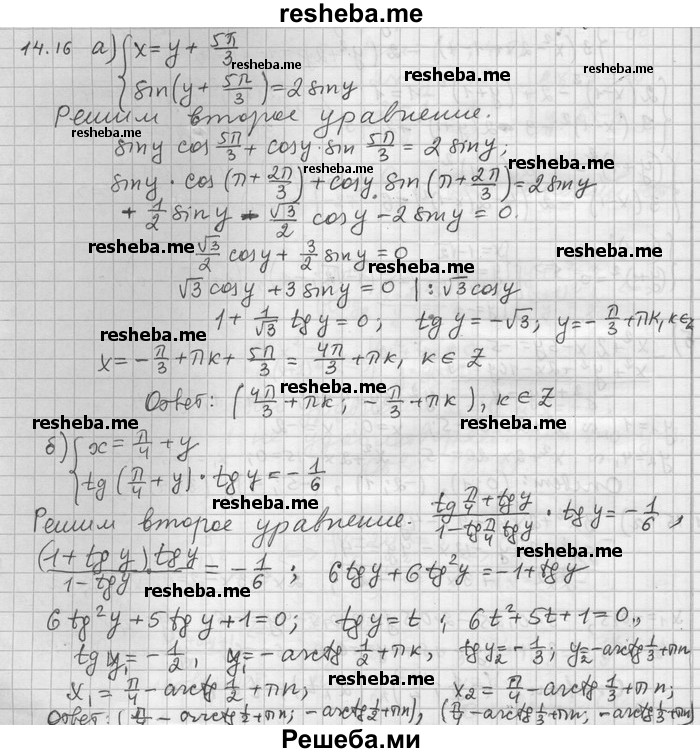 resheba.me
14.16 а) { x = y + 5π/3
resheba.me resheba.me
sin(y + 5π/3) = 2 sin y
Решим второе уравнение.
resheba.me resheba.me
sin y cos 5π/3 + cos y · sin 5π/3 = 2 sin y;
resheba.me resheba.me
sin y · cos(π + 2π/3) + cos y · sin(π + 2π/3) = 2 sin y
+ 1/2 sin y - √3/2 cos y - 2 sin y = 0.
resheba.me resheba.me resheba.me
√3/2 cos y + 3/2 sin y = 0
√3 cos y + 3 sin y = 0 | : √3 cos y
resheba.me resheba.me
1 + 1/√3 tg y = 0; tg y = -√3; y = -π/3 + πk, k ∈ Z
x = -π/3 + πk + 5π/3 = 4π/3 + πk, k ∈ Z
resheba.me
Ответ: (4π/3 + πk; -π/3 + πk), k ∈ Z
resheba.me resheba.me
б) { x = π/4 + y
tg(π/4 + y) · tg y = -1/6
resheba.me resheba.me
Решим второе уравнение. (tg π/4 + tg y)/(1 - tg π/4 tg y) · tg y = -1/6,
resheba.me
(1 + tg y) tg y/(1 - tg y) = -1/6; 6 tg y + 6 tg² y = -1 + tg y
resheba.me resheba.me
6 tg² y + 5 tg y + 1 = 0; tg y = t; 6t² + 5t + 1 = 0.,
resheba.me
tg y₁ = -1/2, y₁ = -arctg 1/2 + πk, tg y₂ = -1/3; y₂ = -arctg 1/3 + πn
resheba.me resheba.me
x₁ = π/4 - arctg 1/2 + πn; x₂ = π/4 - arctg 1/3 + πn;
Ответ: (π/4 - arctg 1/2 + πn; -arctg 1/2 + πn), (π/4 - arctg 1/3 + πn; -arctg 1/3 + πn)
Решеба.ми